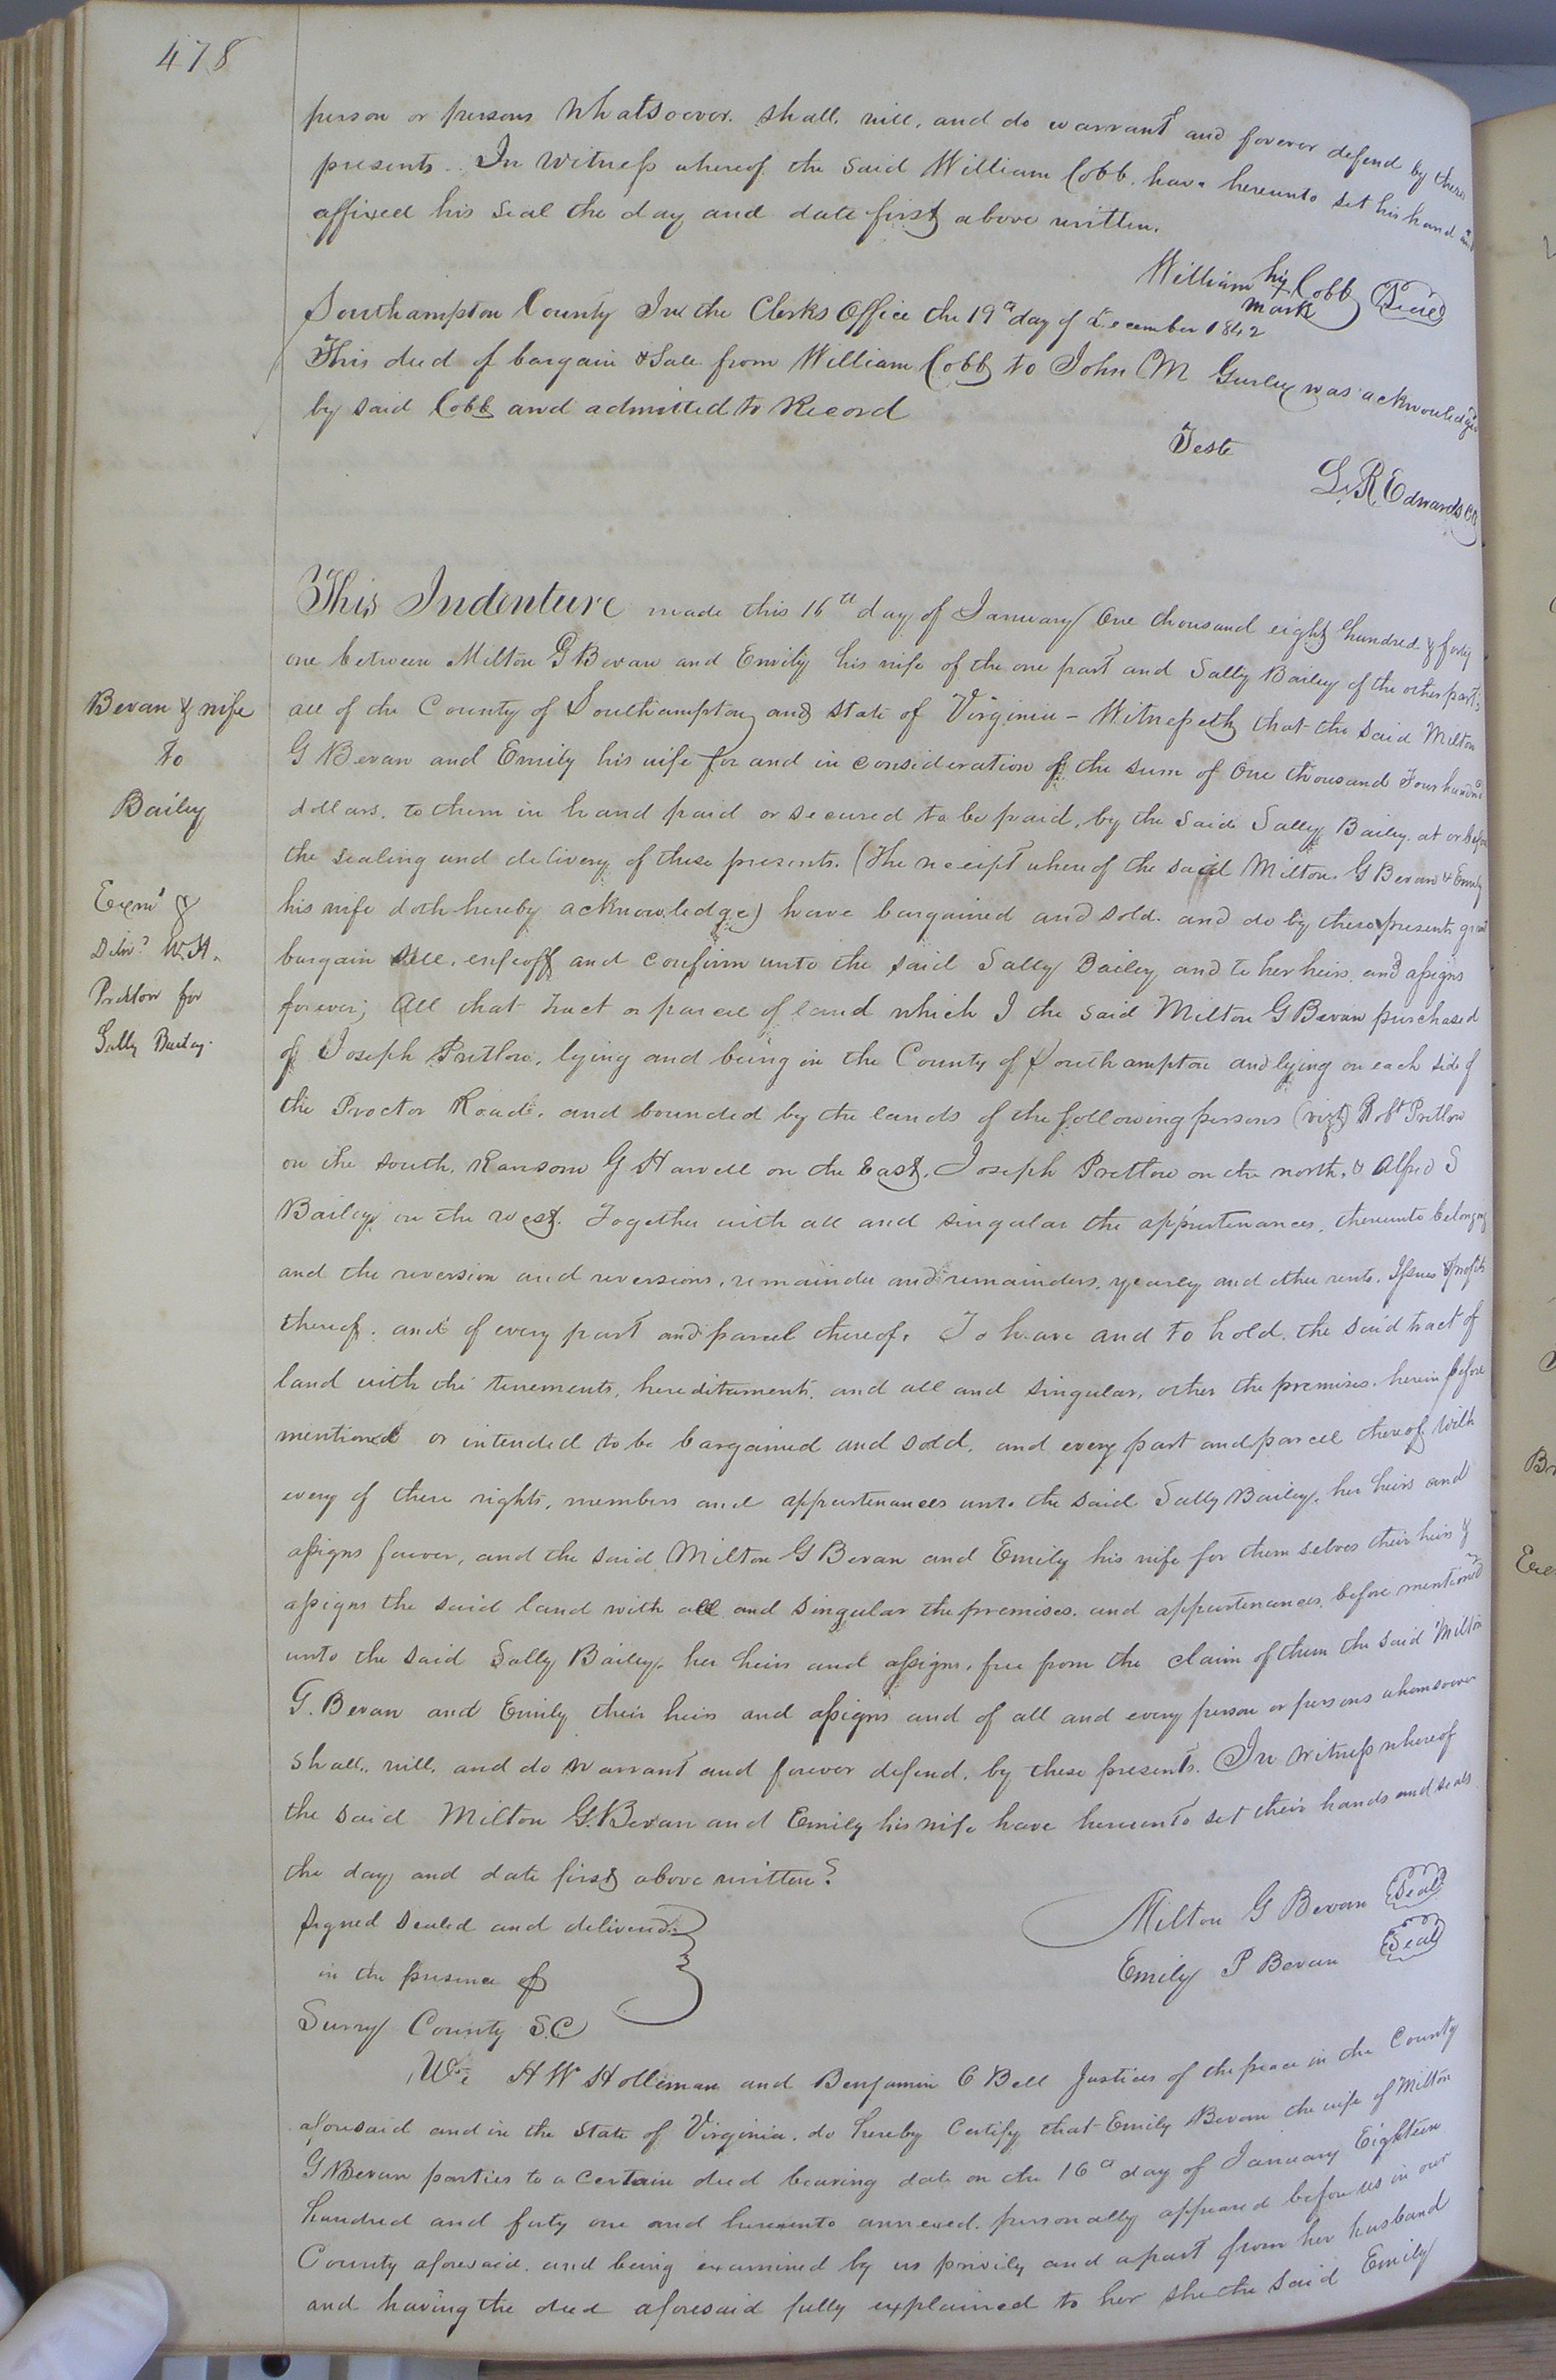 478
person or persons whatsoever. shall, will, and do warrant and forever defend by these
presents. In Witness whereof the said William Cobb. have hereunto set his hand and
affixed his seal the day and date first above written.
William his Cobb Seal
mark
Southampton County In the Clerks Office the 19th day of December 1842
This deed of bargain & Sale from William Cobb to John M Gurley was acknowledged
by said Cobb and admitted to Record
Teste
L. R. Edwards CC
This Indenture made this 16th day of January One thousand eight hundred & forty
one between Milton G Bevan and Emily his wife of the one part and Sally Bailey of the other part,
Bevan & wife
to
Bailey
all of the County of Southampton and State of Virginia - Witnesseth that the said Milton
G Bevan and Emily his wife for and in consideration of the sum of One thousand Four hundred
dollars. to them in hand paid or secured to be paid, by the said Sally Bailey. at or before
the sealing and delivery of these presents. (The receipt whereof the said Milton G Bevan & Emily
Exmd &
Delvd W.H.
Pretlow for
Sally Bailey.
his wife doth hereby acknowledge) have bargained and sold. and do by these presents grant
bargain sell, enfeoff and confirm unto the said Sally Bailey and to her heirs. and assigns
forever; All that tract or parcel of land which I the said Milton G Bevan purchased
of Joseph Pretlow, lying and being in the County of Southampton and lying on each side of
the Proctor Road. and bounded by the lands of the following persons (vizt) Robt Pretlow
on the south, Ransom G Harvell on the East, Joseph Pretlow on the north, & Alfred S
Bailey on the west. Together with all and singular the appurtenances, thereunto belonging
and the reversion and reversions, remainder and remainders, yearly and other rents. Issues & profits
thereof. and of every part and parcel thereof. To have and to hold. the said tract of
land with the tenements, hereditaments, and all and singular, other the premises. herein before
mentioned or intended to be bargained and sold. and every part and parcel thereof with
every of there rights, members and appurtenances unto the said Sally Bailey, her heirs and
assigns forever, and the said Milton G Bevan and Emily his wife for them selves their heirs &
assigns the said land with all and singular the premises. and appurtenances before mentioned
unto the said Sally Bailey, her heirs and assigns, free from the claim of them the said Milton
G. Bevan and Emily their heirs and assigns and of all and every person or persons whomsoever
shall, will, and do warrant and forever defend, by these presents. In witness whereof
the said Milton G. Bevan and Emily his wife have hereunto set their hands and seals
the day and date first above written.
Signed Sealed and delivered
in the presence of
Milton G Bevan Seal
Emily P Bevan Seal
Surry County S.C
We H W Holleman and Benjamin C Bell Justices of the peace in the County
aforesaid and in the State of Virginia. do hereby Certify that Emily Bevan the wife of Milton
G Bevan parties to a certain deed bearing date on the 16th day of January Eighteen
hundred and forty one and hereunto annexed. personally appeared before us in our
County aforesaid. and being examined by us privily and apart from her husband
and having the deed aforesaid fully explained to her she the said Emily